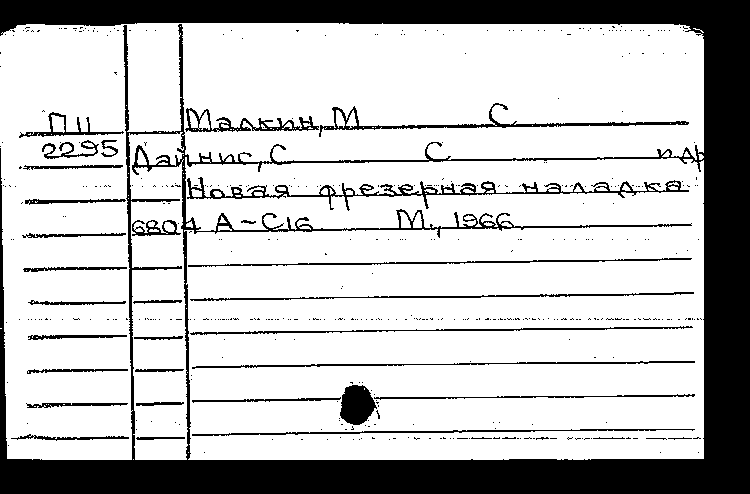 П11 Малкин, М С
2295 Дайнис, С С и др
Новая фрезерная наладка
6804 А-С16 М., 1966.